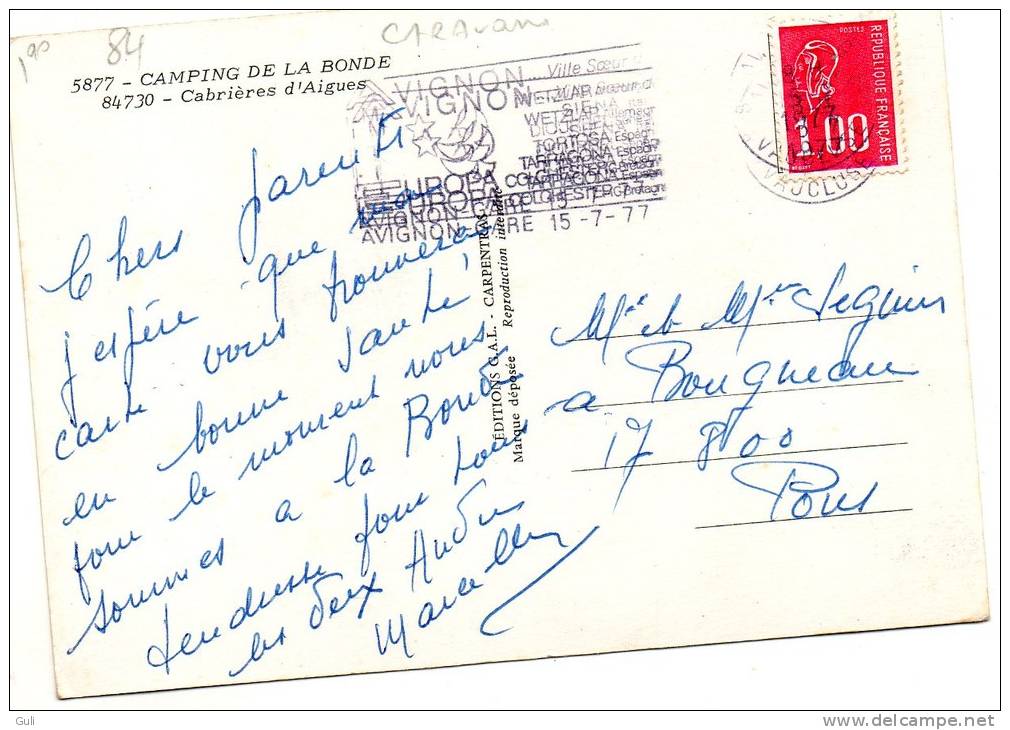 1,90
84
CARAvane
5877 - CAMPING DE LA BONDE
84730 - Cabrières d'Aigues
AVIGNON... Ville Sœur
AVIGNON
WETZLAR
SIENA
TORTOSA Espagne
TARRAGONA Espagne
COLCHESTER G. Bretagne
EUROPA
EUROPA
AVIGNON-GARE
AVIGNON-GARE 15-7-77
VAUCLUSE
POSTES
REPUBLIQUE FRANÇAISE
1,00
Chers parents
j'espère que ma
carte vous trouvera
en bonne santé
pour le moment nous
sommes a la Bonde
tendresse pour tous
les deux André
Marcelle
EDITIONS G.A.L. - CARPENTRAS
Marque déposée
Reproduction interdite
Mr et Mme Seguin
a Bougneau
17 800
Pons
Guli
delcampe.net